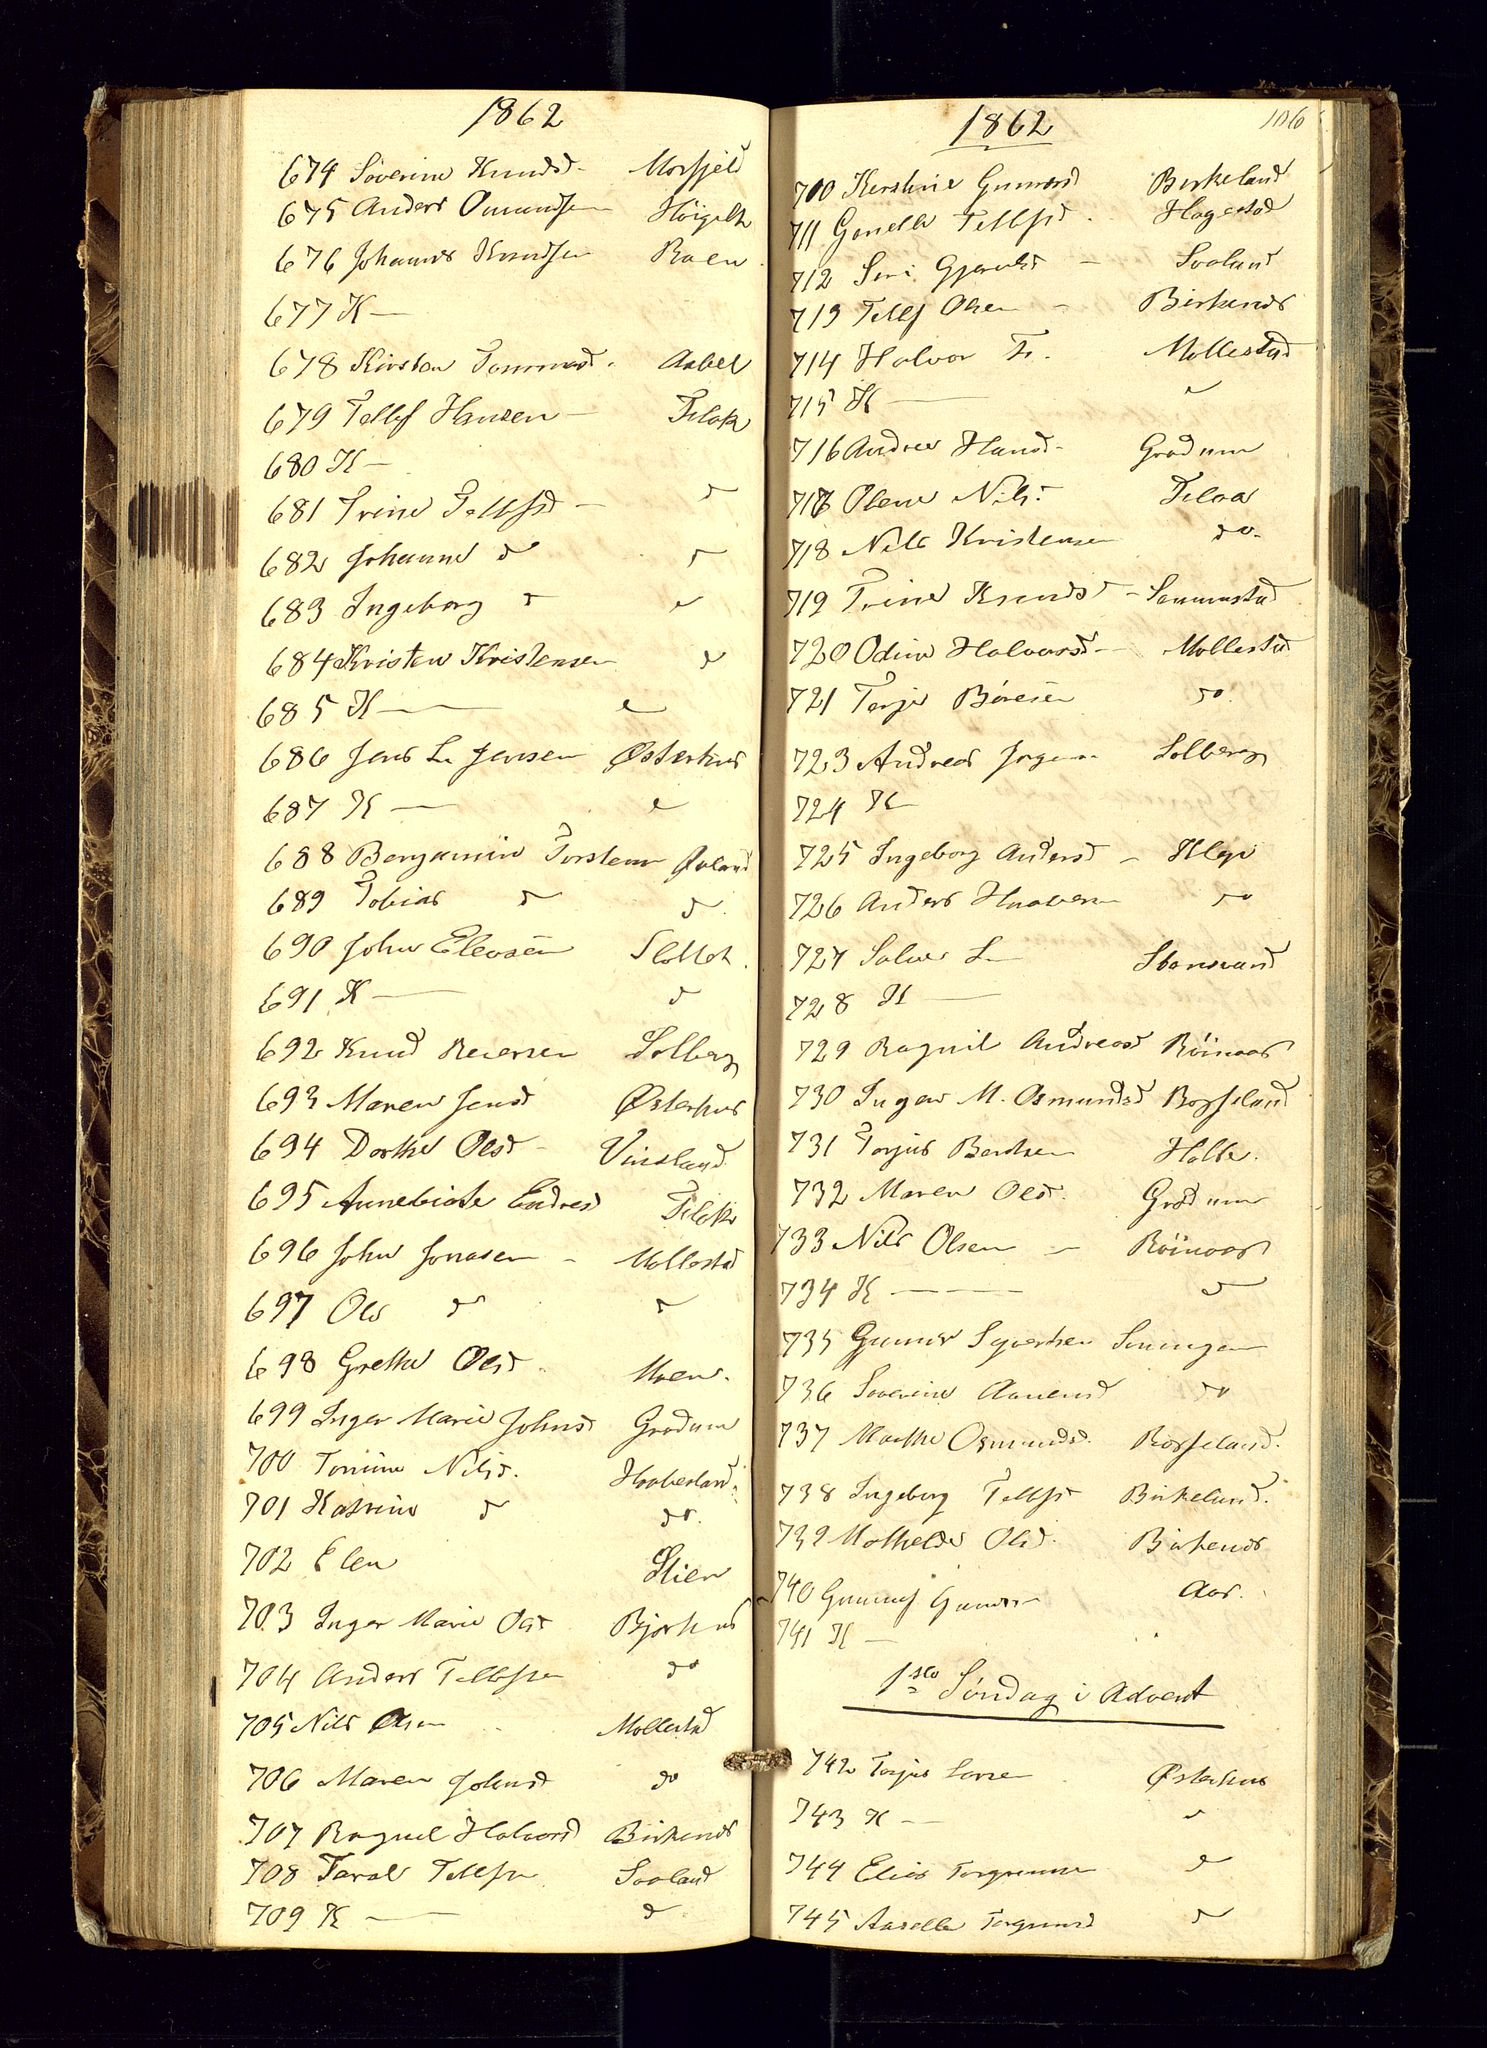 1862
674 Søverine Knudsd - Morfjeld
675 Anders Omundsen Høigilt
676 Johannes Knudsen Roen
677 K —
678 Kirsten Tommesd. Aabel
679 Tellef Hansen — Flak
680 K —
681 Trine Tellefsd — do
682 Johanne do do
683 Ingeborg do "
684 Kristen Kristensen do
685 K — "
686 Jens L. Jensen Østerhus
687 K — "
688 Benjamin Torstens
689 Tobias do do
690 John Elevsen Slottet
691 K — do
692 Knud Reiersen Solberg
693 Maren Jensd Østerhus
694 Dorthe Olsd - Vinsland
695 Annebiate Endresd Flak
696 John Jonasen - Mollestad
697 Ole do do
698 Grethe Olsd Moen.
699 Inger Marie Johnsd Grødum
700 Tomine Nilsd. Haaberland.
701 Katrine do do.
702 Elen Stien
703 Inger Marie Olsd Bjorhus
704 Anders Tellefsen do
705 Nils Olsen Mollestad
706 Maren Johnsd do
707 Ragnel Halvorsd Birkenes
708 Taral Tellefsen Soland
709 K — do
1862
106
700 Kerstine Gunnarsd Birkeland
711 Gonelle Tellefsd. Hagestad
712 Siri — Soland
713 Tellef Olsen — Birkenes
714 Halvor Tr. Mollestad
715 K — "
716 Andrea Hansd - Grødum
717 Olene Nilsd Flaa
718 Nils Kristensen do.
719 Trine Knudsd — Sammestad
720 Odine Halvorsd — Mollestad
721 Terje Børesen do.
723 Andreas Jørgens Solberg
724 K —
725 Ingeborg Andersd — Klep
726 Anders Haavorsen do
727 Salve L Stensvand
728 K —
729 Ragnil Andreasd Röinaas
730 Inger M. Osmundsd Bosseland
731 Torjus Berthsen Holte.
732 Maren Olsd. Grødum
733 Nils Olsen — Röinaas
734 K — — — do
735 Gunner Syvertsen
736 Severine Aanensd do
737 Marthe Osmundsd. Bosseland.
738 Ingeborg Tellefsd Birkeland.
739 Mathilde Olsd. Birkenes
740 Gunnuf Gunders Aas.
741 K — "
1ste Søndag i Advent
742 Torjus Larsen Østerhus
743 K — "
744 Elias Torgrimsen do
745 Aaselle Torgrimsd do